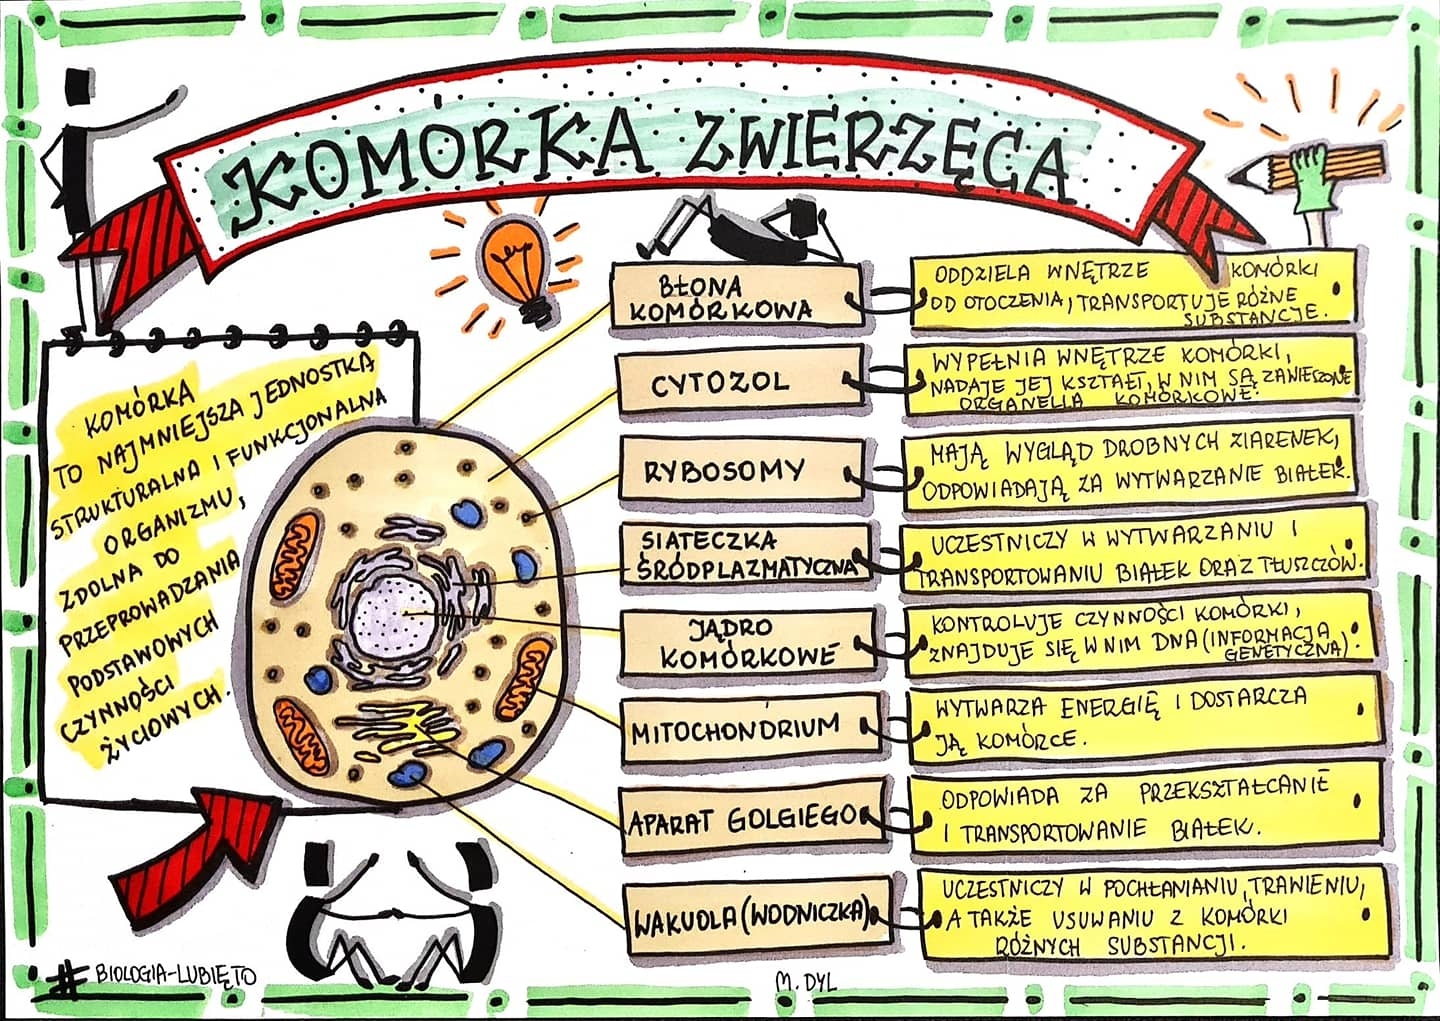 KOMÓRKA ZWIERZĘCA
KOMÓRKA
TO NAJMNIEJSZA JEDNOSTKA
STRUKTURALNA I FUNKCJONALNA
ORGANIZMU,
ZDOLNA DO
PRZEPROWADZANIA
PODSTAWOWYCH
CZYNNOŚCI
ŻYCIOWYCH.
BŁONA
KOMÓRKOWA
ODDZIELA WNĘTRZE KOMÓRKI
OD OTOCZENIA, TRANSPORTUJE RÓŻNE
SUBSTANCJE.
CYTOZOL
WYPEŁNIA WNĘTRZE KOMÓRKI,
NADAJE JEJ KSZTAŁT, W NIM SĄ ZAWIESZONE
ORGANELLA KOMÓRKOWE.
RYBOSOMY
MAJĄ WYGLĄD DROBNYCH ZIARENEK,
ODPOWIADAJĄ ZA WYTWARZANIE BIAŁEK.
SIATECZKA
ŚRÓDPLAZMATYCZNA
UCZESTNICZY W WYTWARZANIU I
TRANSPORTOWANIU BIAŁEK ORAZ TŁUSZCZÓW.
JĄDRO
KOMÓRKOWE
KONTROLUJE CZYNNOŚCI KOMÓRKI,
ZNAJDUJE SIĘ W NIM DNA (INFORMACJA
GENETYCZNA).
MITOCHONDRIUM
WYTWARZA ENERGIĘ I DOSTARCZA
JĄ KOMÓRCE.
APARAT GOLGIEGO
ODPOWIADA ZA PRZEKSZTAŁCANIE
I TRANSPORTOWANIE BIAŁEK.
WAKUOLA (WODNICZKA)
UCZESTNICZY W POCHŁANIANIU, TRAWIENIU,
A TAKŻE USUWANIU Z KOMÓRKI
RÓŻNYCH SUBSTANCJI.
# BIOLOGIA-LUBIĘTO
M. DYL